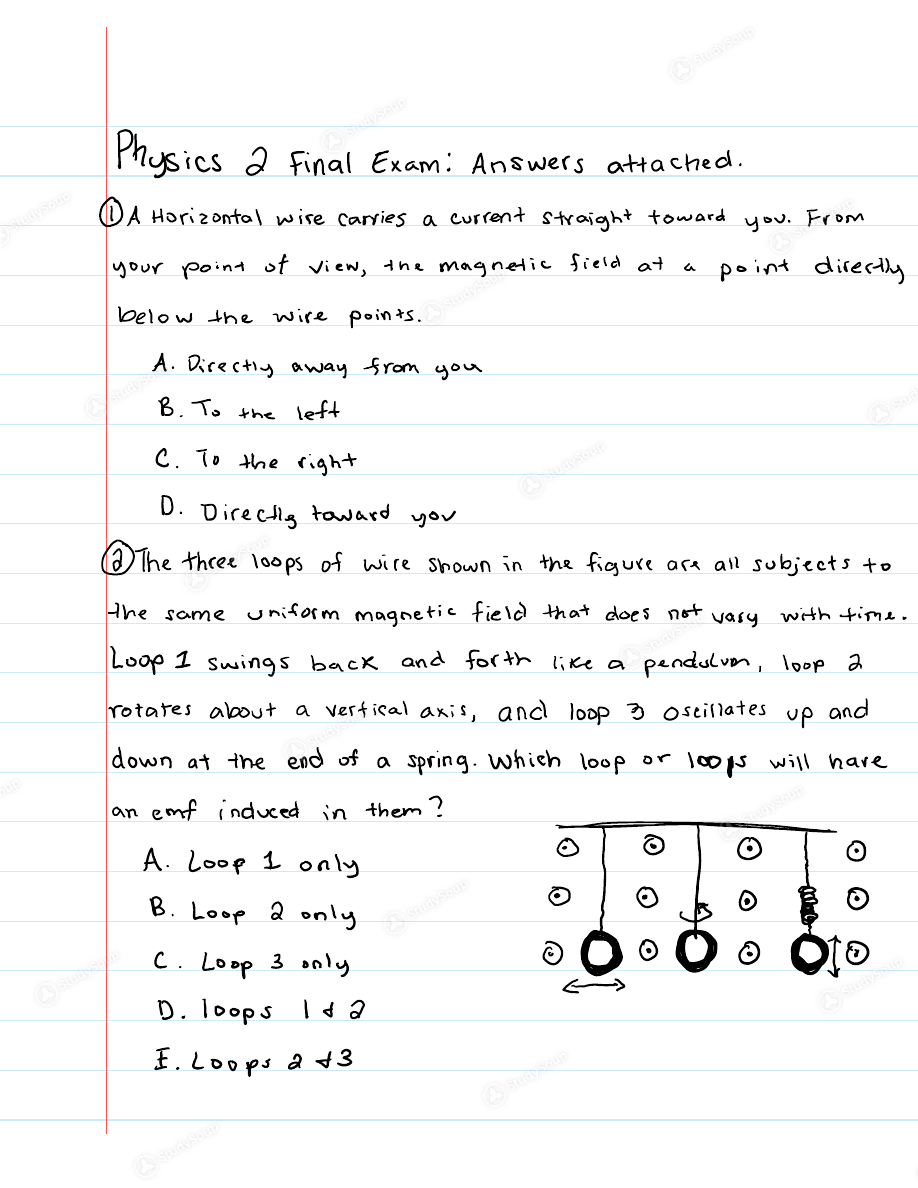 Physics 2 Final Exam: Answers attached.
① A Horizontal wire carries a current straight toward you. From
your point of view, the magnetic field at a point directly
below the wire points.
A. Directly away from you
B. To the left
C. To the right
D. Directly toward you
② The three loops of wire shown in the figure are all subjects to
the same uniform magnetic field that does not vary with time.
Loop 1 swings back and forth like a pendulum, loop 2
rotates about a vertical axis, and loop 3 oscillates up and
down at the end of a spring. Which loop or loops will have
an emf induced in them?
A. Loop 1 only
B. Loop 2 only
C. Loop 3 only
D. loops 1 & 2
E. Loops 2 & 3
StudySoup